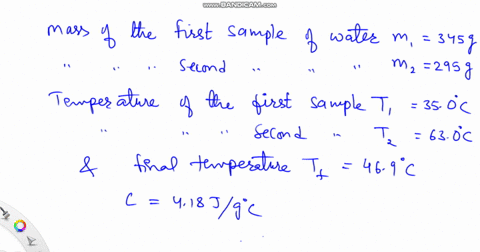 www.BANDICAM.com
Mass of the first sample of water m₁ = 345g
" " " Second " " " m₂ = 295g
Temperature of the first sample T₁ = 35.0°C
" " " Second " T₂ = 63.0°C
& final temperature T_f = 46.9°C
C = 4.18 J/g°C